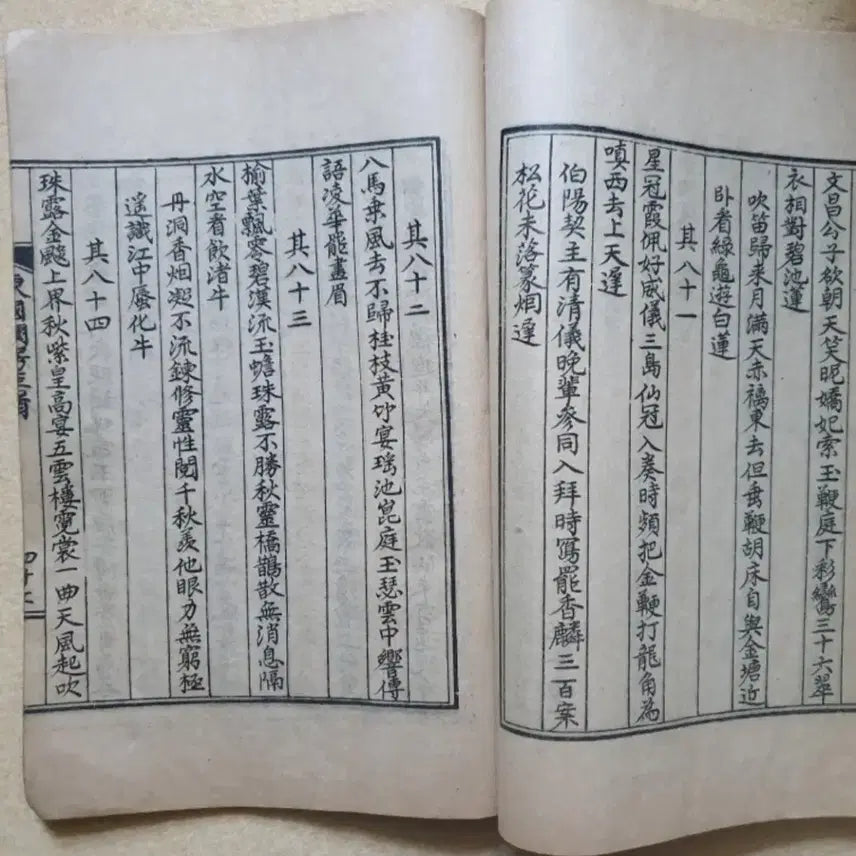 文昌公子欲朝天笑昵嬌妃索玉鞭庭下彩鸞三十六翠
衣相對碧池蓮
吹笛歸来月滿天赤禍東去但垂鞭胡床自與金塘近
卧看緑龜遊白蓮
其八十一
星冠霞佩好威儀三島仙冠入奏時頻把金鞭打龍角為
嗔西去上天遲
伯陽契主有清儀晚輩參同入拜時寫罷香麟三百案
松花未落篆烟遲
其八十二
八馬乗風去不歸桂枝黄竹宴瑶池崑庭玉瑟雲中響傳
語凌華罷畫眉
其八十三
榆葉飄零碧漢流玉蟾珠露不勝秋靈橋鵲散無消息隔
水空看飲渚牛
丹洞香烟凝不流鍊修靈性閲千秋羨他眼力無窮極
遥識江中蜃化牛
其八十四
珠露金飇上界秋紫皇高宴五雲樓霓裳一曲天風起吹